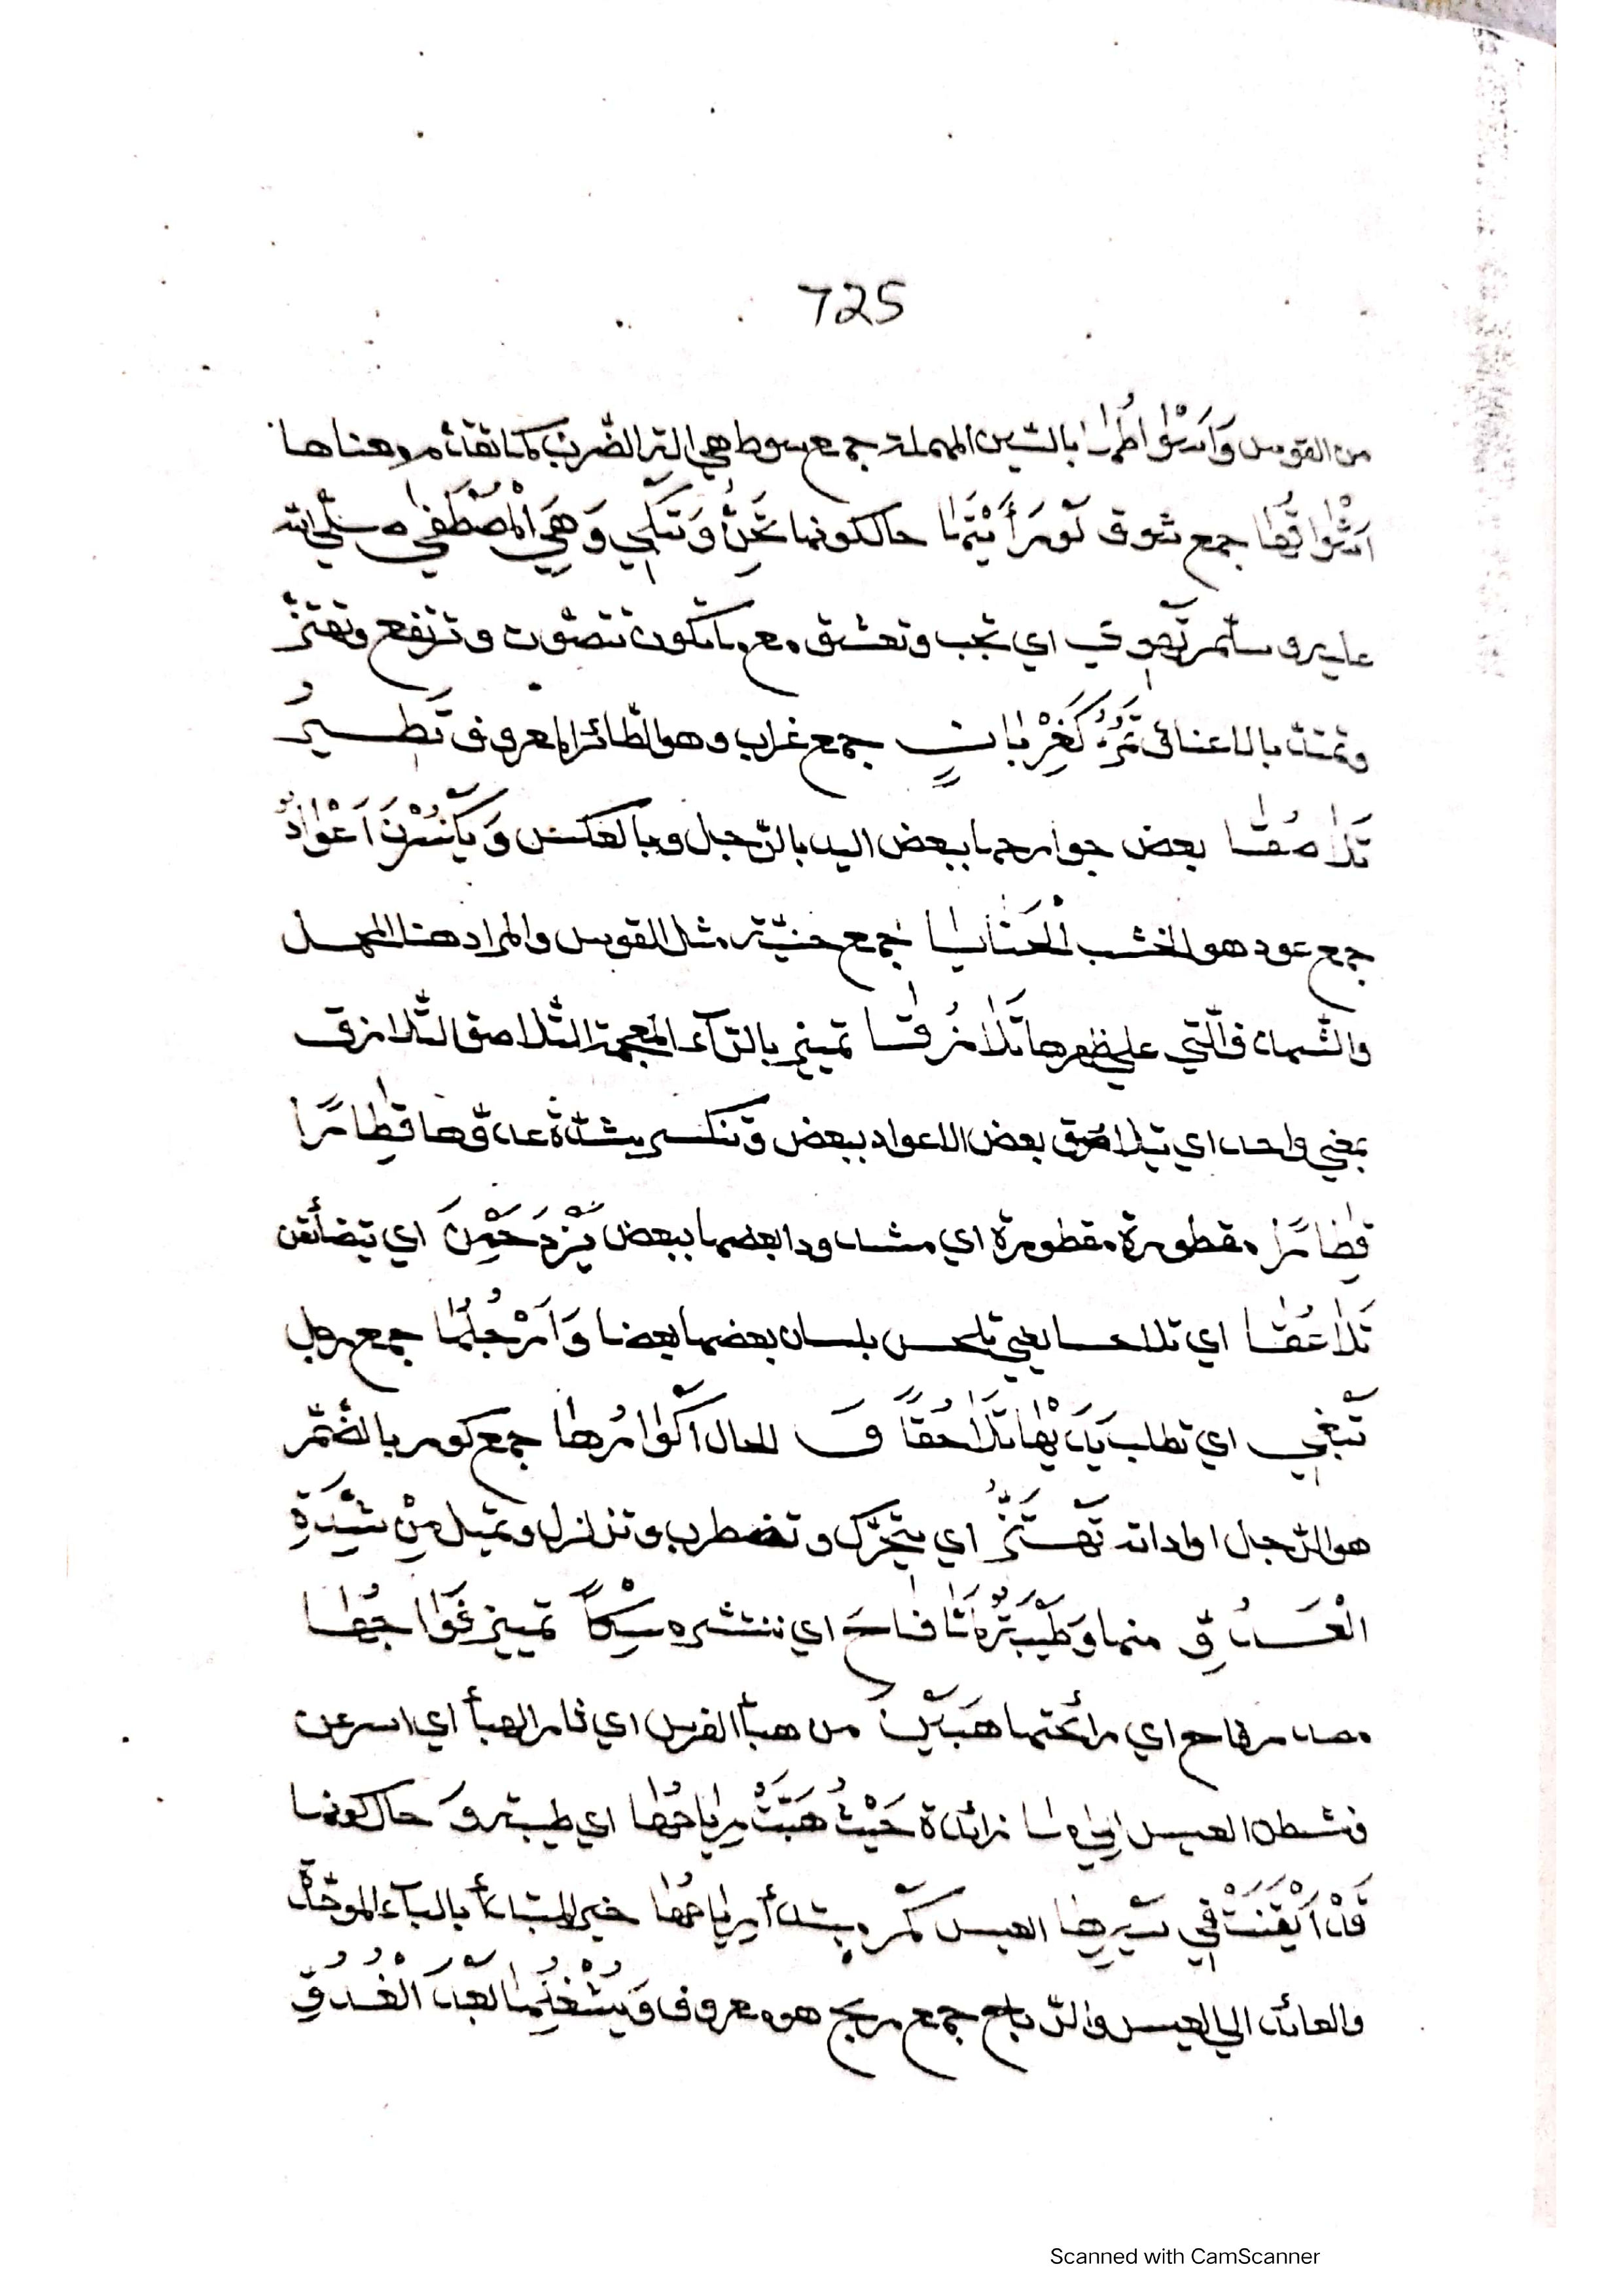 725
من القوس وَاَسْوَاطُهَا بالسّين المهملة جمع سوط هي الة الضّرب كما تقدّم وهناها
اَشْوَاقُهَا جمع شوق لَوْ رَأَيْتَهَا حالكونها تَحِنُّ وَتَبْكِي وَهِيَ الْمُصْطَفٰى صلّي الله
عليه وسلّم تَهْوٰي اي تحب وتعشق مع ما تكون تتصوّت وترتفع وتهتزّ
وتمتدّ بالاعناق تَمُرُّ كَغِرْبَانٍ جمع غراب وهو الطّائر المعروف تَطِيْرُ
تَلَاصُقًا بعض جوارحها ببعض اليد بالرّجل وبالعكس وَيَكْسِرْنَ اَعْوَادُ
جمع عود هو الخشب الْحَنَايَا جمع حنيّة مثل القوس والمراد هنا المحمل
والشّمان فالّتي علي ظهرها تَلَازُقًا تمييز بالزّآء المعجمة التّلاصق التّلازق
بمعني واحد اي تيلاصق بعض الاعواد ببعض وتنكسر بشدّة عدوّها قِطَارًا
قِطَارًا مقطورة مقطورة اي مشدودا بعضها ببعض يَزْدَحِمْنَ اي يتضائقن
تَلَاعُقًا اي تلاحسا يعني تلحس بلسان بعضها بعضا وَاَرْجُلُهَا جمع رجل
تَبْغِي اي تطلب يَدَيْهَا تَلَاحُقًا وَ الحال اَكْوَارُهَا جمع كور بالضّمّ
هو الرّحل او اداته تَهْتَزُّ اي يتحرّك وتضطرب وتزلزل وتميل مِنْ شِدَّةِ
الْعَدْوِ منها وَطَيْبَةُ فَاحَ اي تنتشره مِسْكًا تمييز فَوَائِحُهَا
مصدر فاح اي رأئحتها هَبَبْنَ من هبأ الفرس اي ثار الهبأ اي اسرعن
فنشطن العيس اِلٰي مَا زائدة حَيْثُ هَبَّتْ رِيَاحُهَا اي طيبة وَ حالكونها
قَدْ اَيْقَنَتْ فِي سَيْرِهَا العيس كم مبتدأ رِيَاحُهَا خبر المبتدأ بالبآء الموحّدة
والعائد الي العيس والرّياح جمع ريح هو معروف وَيُشْغِلُهَا بَعْدَ الْغُدُوِّ
Scanned with CamScanner